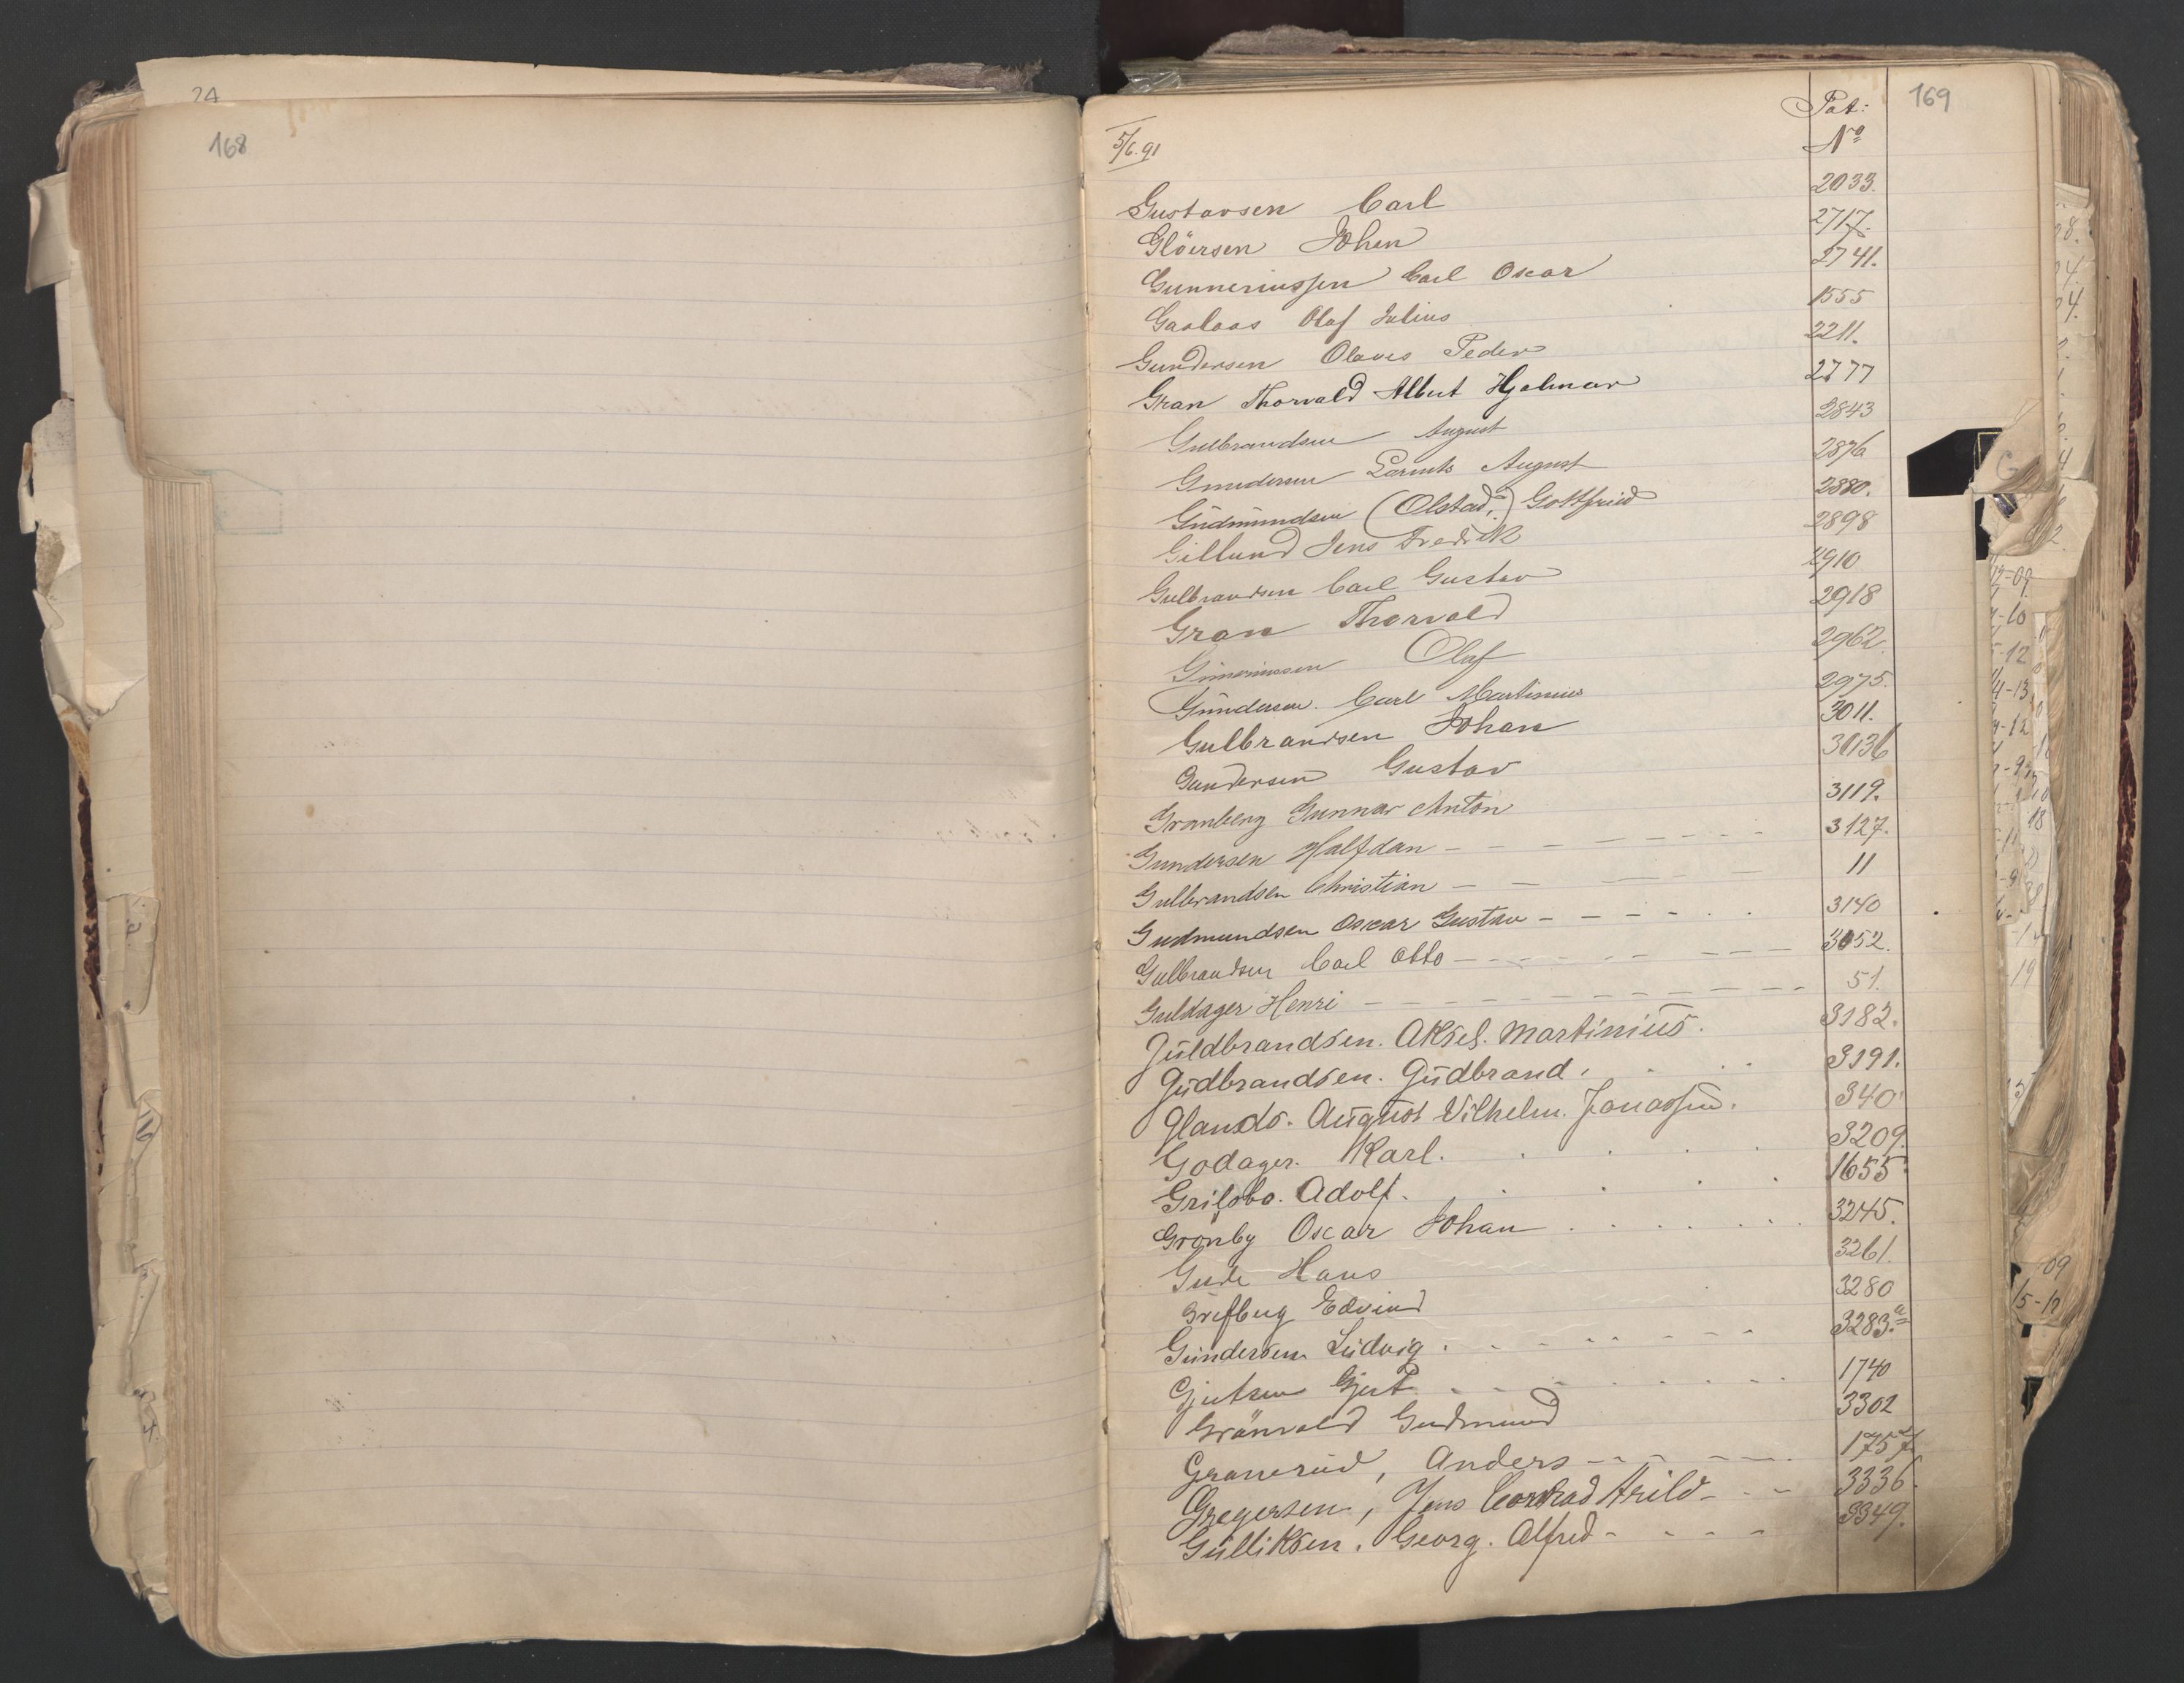 24
168
169
Pat:
5/6.91
No
Gustavsen Carl 2033.
Glöersen Johan 2717.
Gunneriussen Carl Oscar 2741.
Gaalaas Olaf Julius 1555
Gundersen Olaves Peder 2211.
Gran Thorvald Albert Hjalmar 2777
Gulbrandsen August 2843
Gundersen Laurits August 2876
Gudmundsen (Olstad,) Gottfried 2880.
Gillund Jens Fredrik 2898
Gulbrandsen Carl Gustav 2910
Gran Thorvald 2918
Guneriussen Olaf 2962.
Gundersen Carl Martinius 2975.
Gulbrandsen Johan 3011.
Gundersen Gustav
Granberg Gunnar Anton 3119.
Gundersen Halfdan 3127.
Gulbrandsen Christian 11
Gudmundsen Oscar Gustav 3140
Gulbrandsen Carl Otto 3052.
Guldager Henri 51.
Guldbrandsen. Aksel. Martinius. 3182.
Gudbrandsen. Gudbrand. 3191.
August Vilhelm. Jonassen. 340
Godager. Karl. 3209.
Adolf. 1655
Grönby Oscar Johan 3245.
Gude Hans 3261.
Grefberg Edvind 3280
Gundersen Ludvig. 3283.a
Gjertsen Gjert 1740
Grönvold Gudmund 3302
Granerud, Anders 1757
Gregersen, Jens Conrad Arild 3336.
Gulliksen. Georg. Alfred 3349.